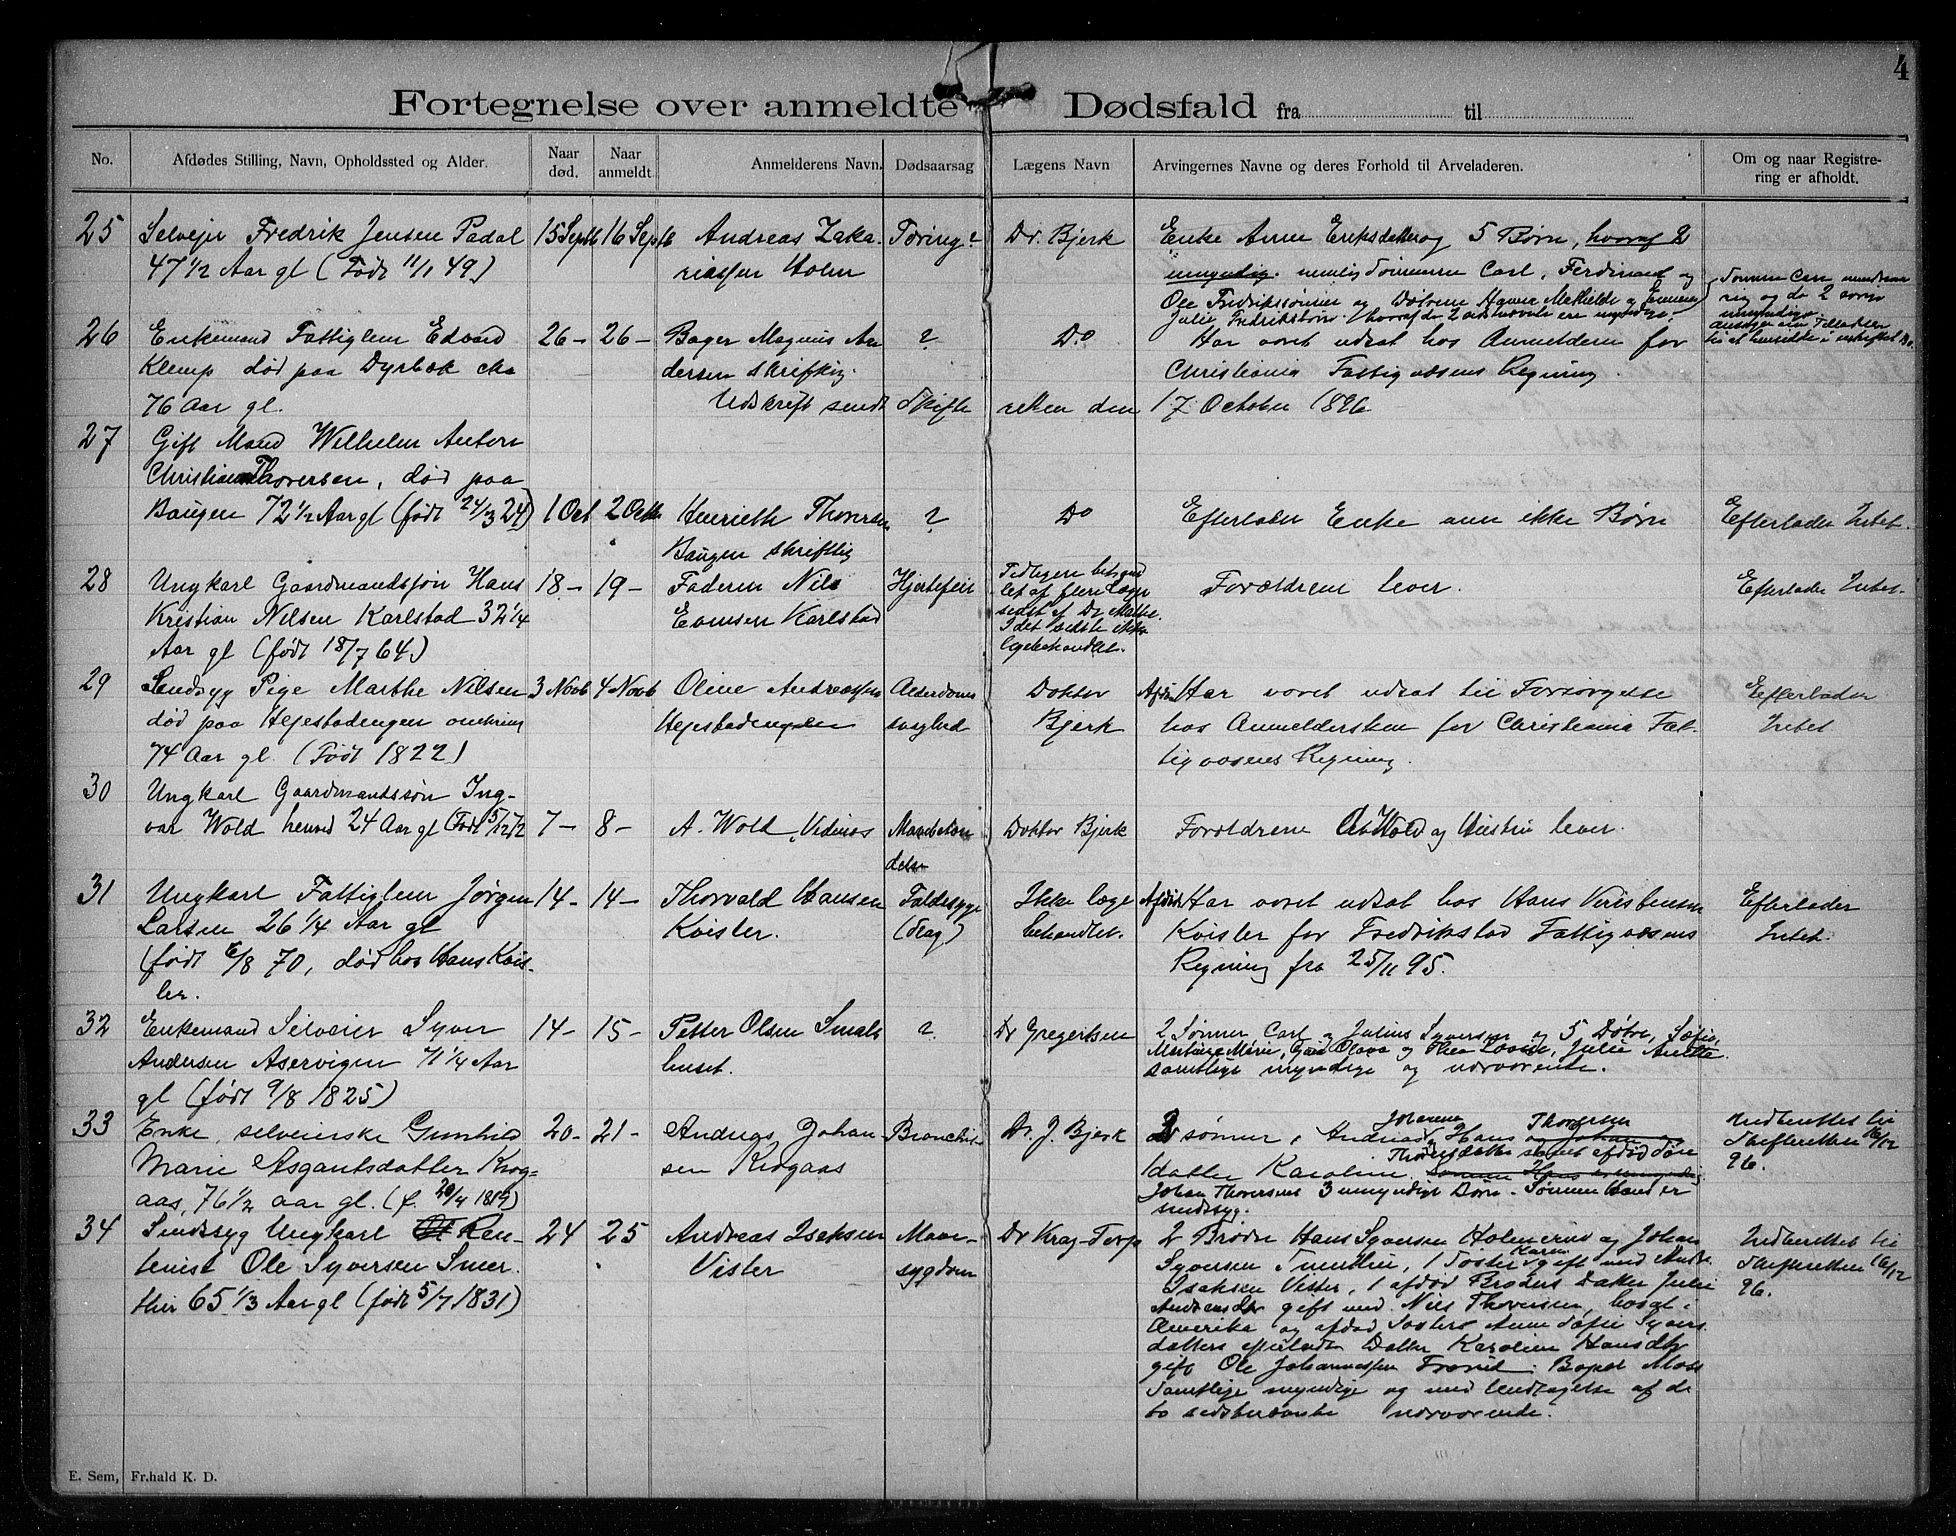 4
Fortegnelse over anmeldte Dødsfald fra til
No.
Afdødes Stilling, Navn, Opholdssted og Alder.
Naar død.
Naar anmeldt.
Anmelderens Navn.
Dødsaarsag
Lægens Navn
Arvingernes Navne og deres Forhold til Arveladeren.
Om og naar Registre-
ring er afholdt.
25
Selveier Fredrik Jensen Padal
47 1/2 Aar gl (Født 11/1 49)
15 Septb
16 Septb
Andreas Zaka-
riassen Holm
Tæring?
Dr. Bjerk
Enke Anne Eriksdatter og 5 Børn, hvoraf 2
umyndig. nemlig Sønnerne Carl, Ferdinand og
Ole Fredrikssønner og Døtrene Hanna Mathilde og
Julie Fredriksdøtre
Sønnen Carl
og de 2
umyndige
26
Enkemand Fattiglem Edvard
Klemp død paa Dyrbæk cka
76 Aar gl.
26 –
26 –
Bager Magnus An
dersen skriftlig.
?
Do
Har været udsat hos Anmelderen for
Christiania Fattigvæsens Regning.
Udskrift sendt Skifteretten den 17 October 1896
27
Gift Mand Wilhelm Anton
Christian Thoversen, død paa
Baugen 72 1/2 Aar gl (født 24/3 24)
1 Oct
2 Octb
Henriette Thoversen
Baugen skriftlig
?
Do
Efterlader Enke men ikke Børn
Efterlader Intet.
28
Ungkarl Gaardmandssøn Hans
Kristian Nilsen Karlstad 32 1/4
Aar gl (født 18/7 64)
18 –
19 –
Faderen Nils
Evensen Karlstad
Hjertefeil
Tidligere behand
let af flere Læger
sidst af Dr Malthe.
I det sidste ikke
lægebehandlet.
Forældrene lever.
Efterlader Intet.
29
Sindsyg Pige Marthe Nilsen
død paa Hejestadengen omkring
74 Aar gl. (Født 1822)
3 Novb
4 Novb
Oline Andreassen
Hejestadengen
Alderdoms
svaghed
Doktor
Bjerk
Afdøde Har været udsat til Forsørgelse
hos Anmeldersken for Christiania Fat-
tigvæsens Regning.
Efterlader
Intet
30
Ungkarl Gaardmandssøn Ing-
var Wold henved 24 Aar gl (Født 5/12 72
7 –
8 –
A. Wold, Vidnes
Doktor Bjerk
Forældrene Wold og lever.
31
Ungkarl Fattiglem Jørgen
Larsen 26 1/4 Aar gl
(født 6/8 70, død hos Hans Kvis-
ler.
14 –
14 –
Thorvald Hansen
Kvisler.
Faldesyge
(Slag)
Ikke læge
behandlet.
Afdøde Har været udsat hos Hans Kristensen
Kvisler for Fredrikstad Fattigvæsens
Regning fra 25/11 95.
Efterlader
Intet.
32
Enkemand Selveier Syver
Andersen Aservigen 71 1/4 Aar
gl (født 9/8 1825)
14 –
15 –
Petter Olsen Smals
huset.
?
Dr Gregertsen
2 Sønner Carl og Julius Syversen og 5 Døtre, Sofie,
Martine Marie, Olava og Thea Lovise, Julie Anette.
samtlige myndige og nærværende.
33
Enke, selveierske Gunhild
Marie Asgautsdatter Krog-
aas, 76 1/2 aar gl. (f. 20/4 1819)
20 –
21 –
Andreas Johan
sen Krogaas
Bronchit-
Dr. J. Bjerk
2 sønner, Andreas Johansen og Hans Thoversen
1 datter Karoline Thoversdatter samt afdød søn
sønnen Hans er umyndig
Johan Thoversens 3 umyndige Børn. Sønnen Hans er
sindssyg.
Indberettet til
Skifteretten 16/12
96.
34
Sindssyg Ungkarl Ren-
tenist Ole Syversen Smer-
thir 65 1/3 Aar gl (født 5/7 1831)
24
25
Andreas Isaksen
Vister
Mave-
sygdom
Dr Krag-Torp
2 Brødre Hans Syversen Holmerud og Johan
Syversen Smerthir, 1 Søster Karen gift med Andr.
Isaksen Vister, 1 afdød Broders Datter Julie
gift med Nils Thoversen, bosat i
Amerika og afdød Søsters Anne Sofie Syvers
datters efterladte Datter Karoline Hansdtr
gift Ole Johannessen Bopæl Moss
Samtlige myndige og med Undtagelse af de
to sidstnævnte nærværende.
Indberettet til
Skifteretten 16/12
96.
E. Sem, Fr.hald K. D.